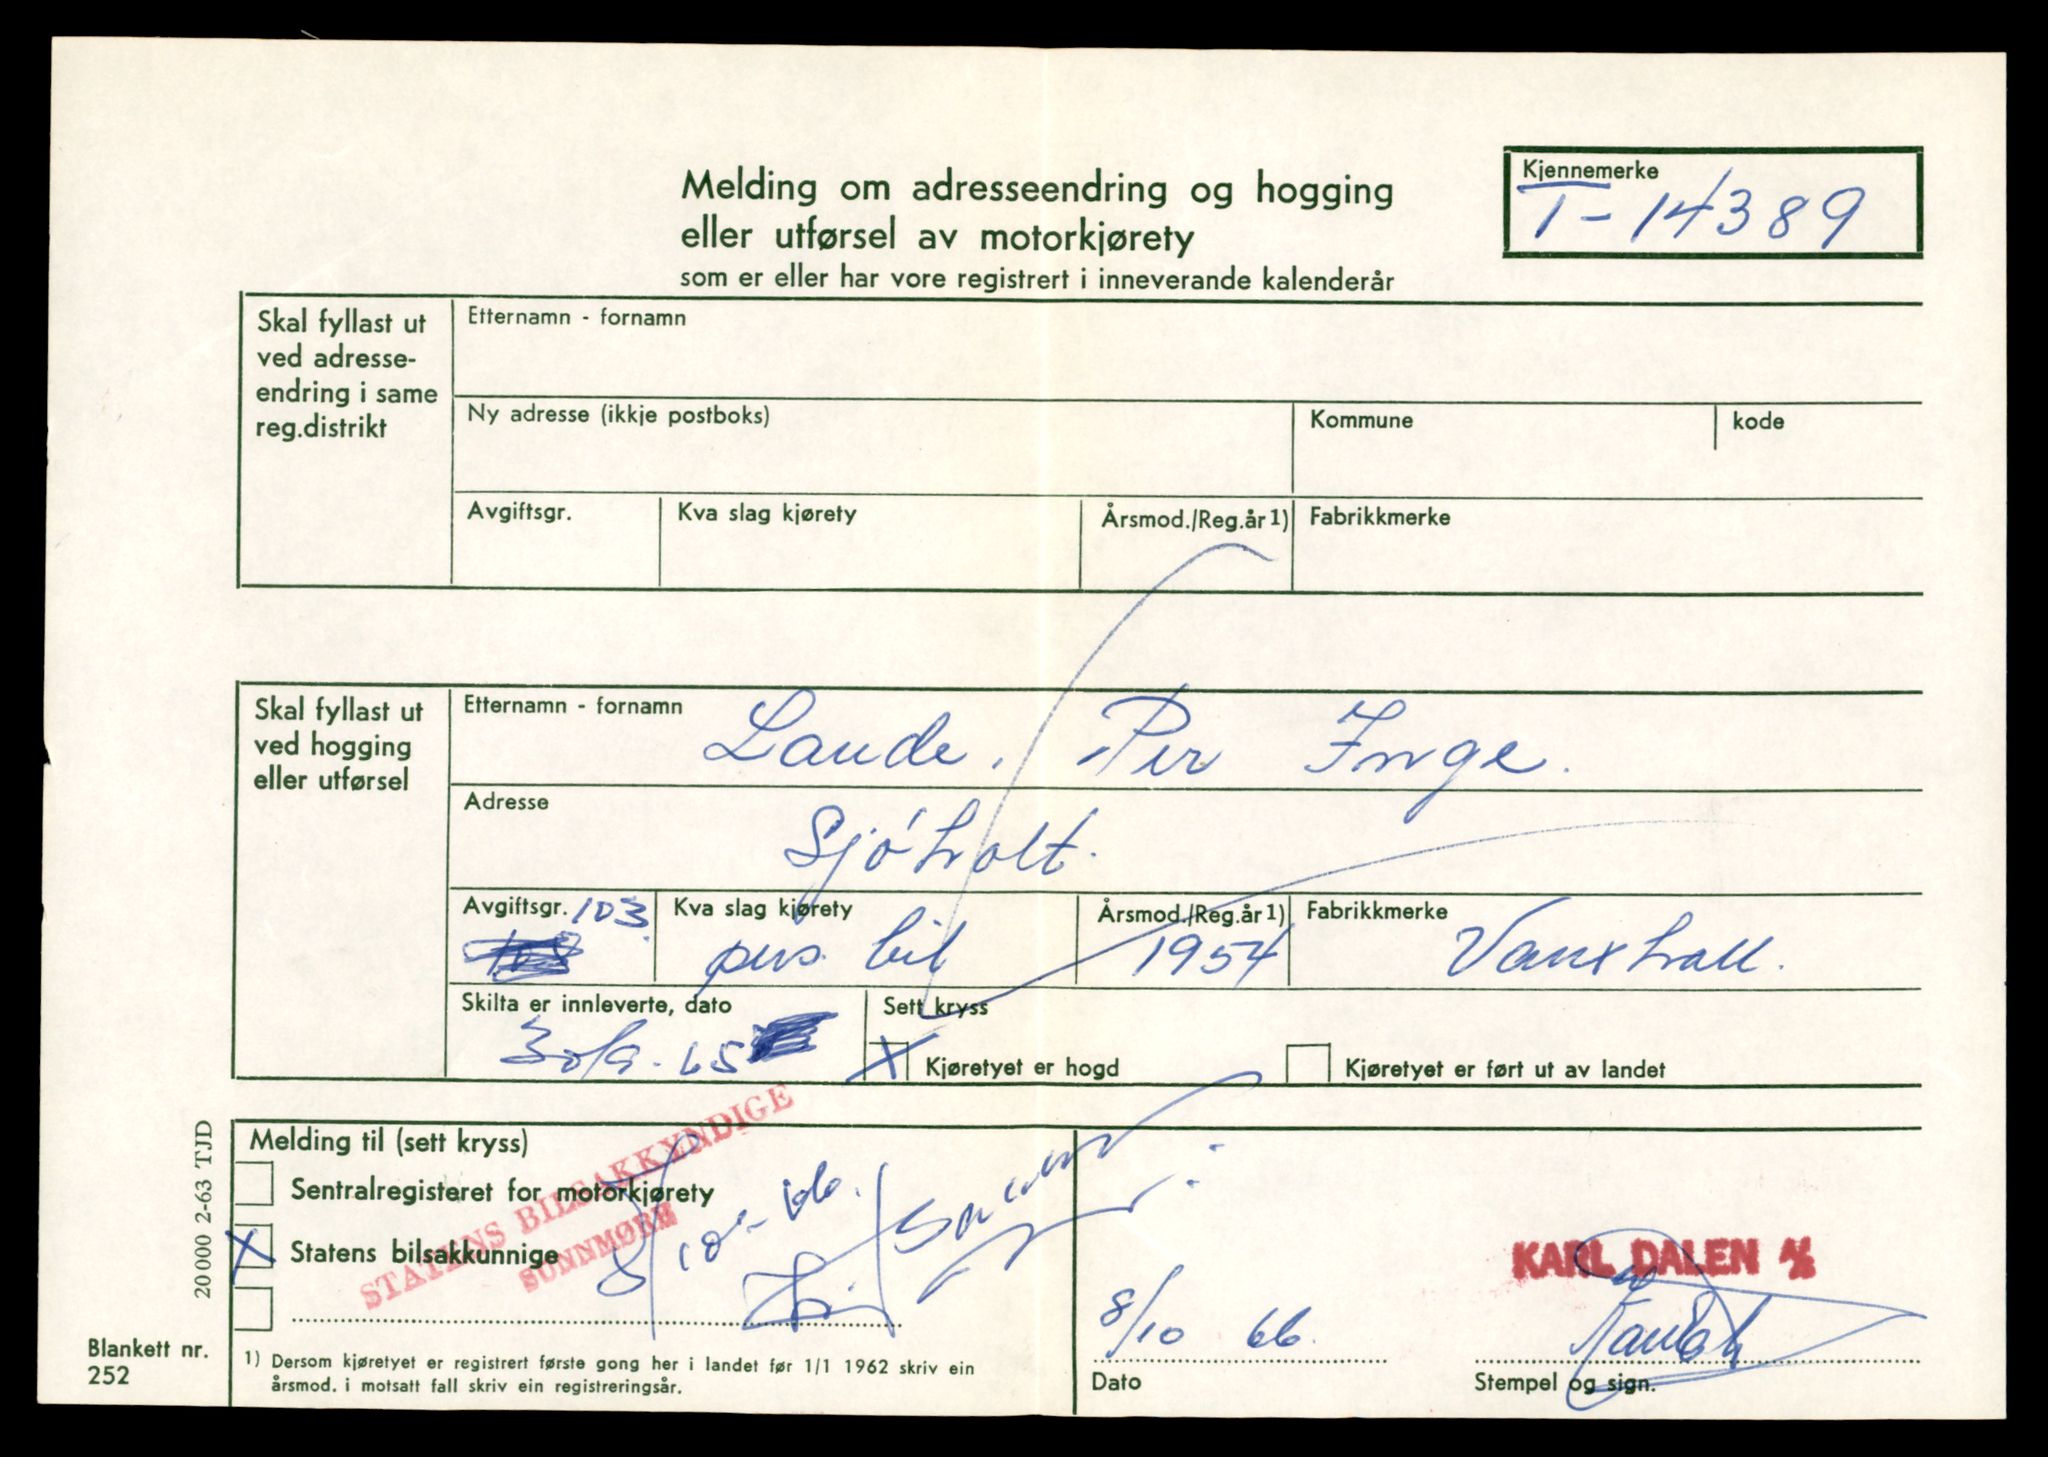 Melding om adresseendring og hogging
eller utførsel av motorkjørety
som er eller har vore registrert i inneverande kalenderår
Kjennemerke
T-14389
Skal fyllast ut
ved adresse-
endring i same
reg.distrikt
Etternamn - fornamn
Ny adresse (ikkje postboks)
Kommune
kode
Avgiftsgr.
Kva slag kjørety
Årsmod./Reg.år 1)
Fabrikkmerke
Skal fyllast ut
ved hogging
eller utførsel
Etternamn - fornamn
Lande. Per Inge.
Adresse
Sjóholt.
Avgiftsgr. 103
Kva slag kjørety
pers. bil
Årsmod./Reg.år 1)
1954
Fabrikkmerke
Vauxhall.
Skilta er innleverte, dato
30/9-65
Sett kryss
X Kjøretyet er hogd
Kjøretyet er ført ut av landet
Melding til (sett kryss)
Sentralregisteret for motorkjørety
X Statens bilsakkunnige
STATENS BILSAKKYNDIGE
SUNNMØRE
8/10-66.
KARL DALEN A/S
8/10 66.
Dato
Stempel og sign.
1) Dersom kjøretyet er registrert første gong her i landet før 1/1 1962 skriv ein
årsmod. i motsatt fall skriv ein registreringsår.
20 000 2-63 TJD
Blankett nr.
252